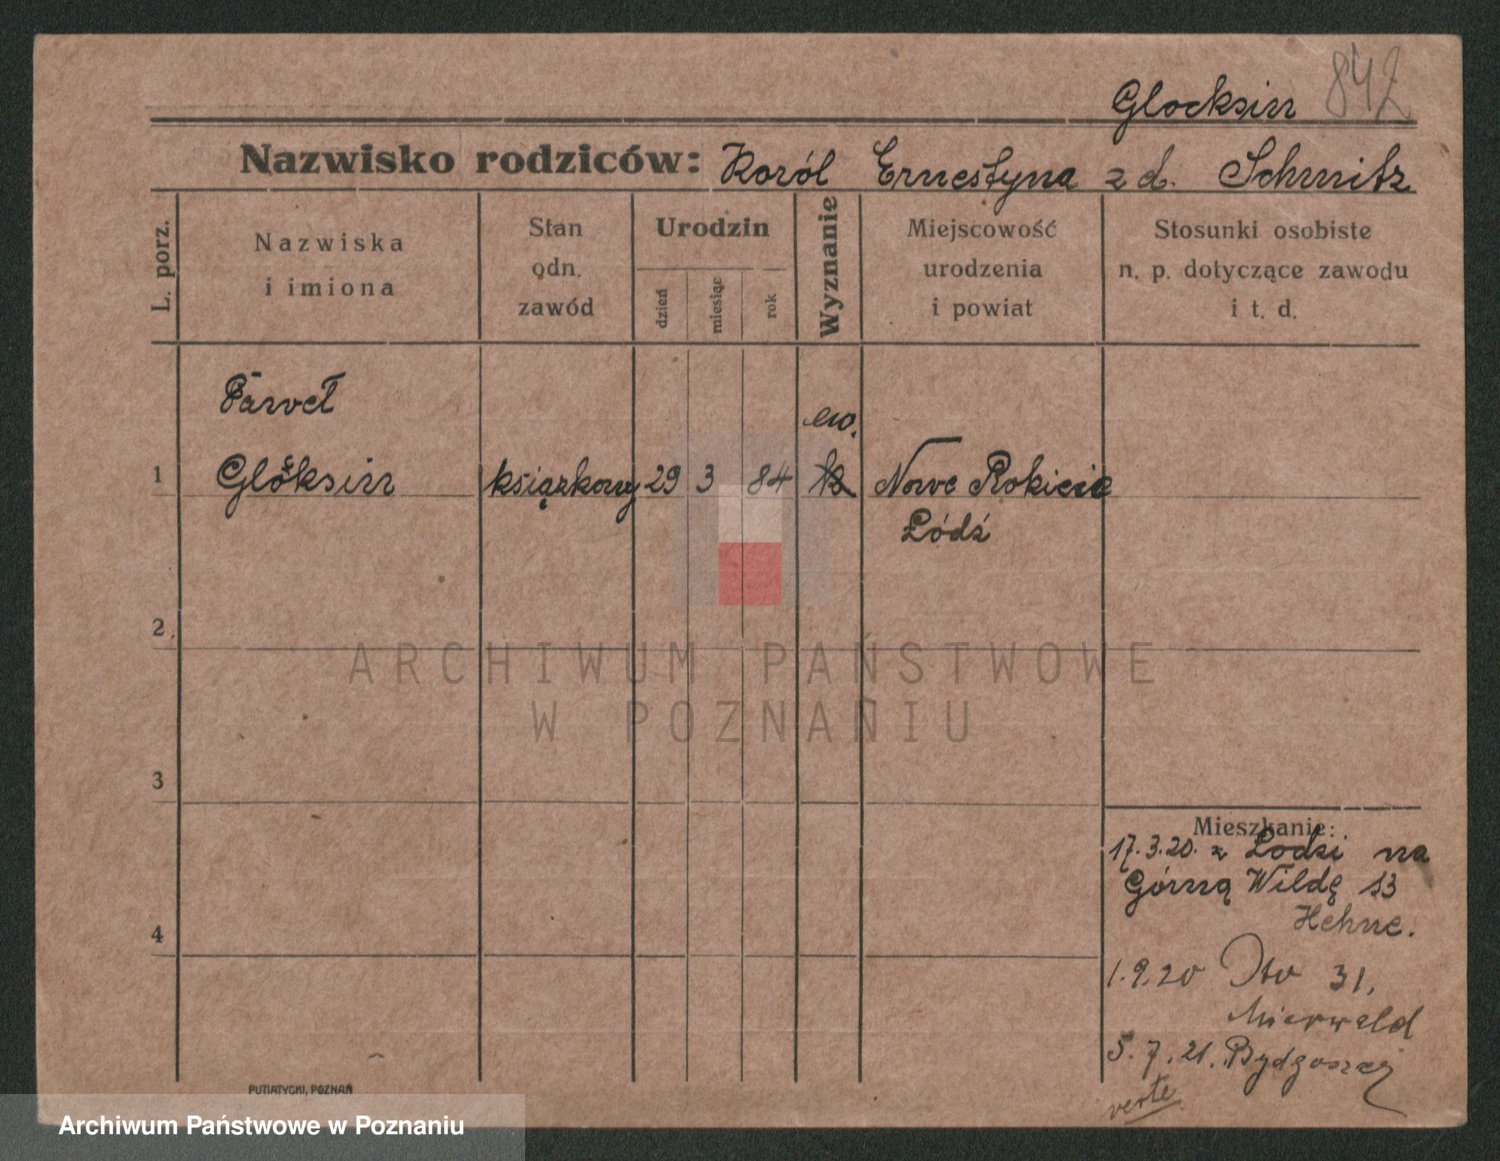 842
Glocksin
Nazwisko rodziców: Karól Ernestyna z d. Schmitz
L. porz.
Nazwiska
i imiona
Stan
odn.
zawód
Urodzin
dzień
miesiąc
rok
Wyznanie
Miejscowość
urodzenia
i powiat
Stosunki osobiste
n. p. dotyczące zawodu
i t. d.
Paweł
ew.
1 Glöksin książkowy 29 3 84 k Nowe Rokicie
Łódź
2
ARCHIWUM PAŃSTWOWE
W POZNANIU
3
Mieszkanie:
17.3.20. z Łodzi na
Górną Wildę 53
Hehne.
4
1.9.20 31,
5.7.21. Bydgoszcz
verte
PUTIATYCKI, POZNAŃ
Archiwum Państwowe w Poznaniu